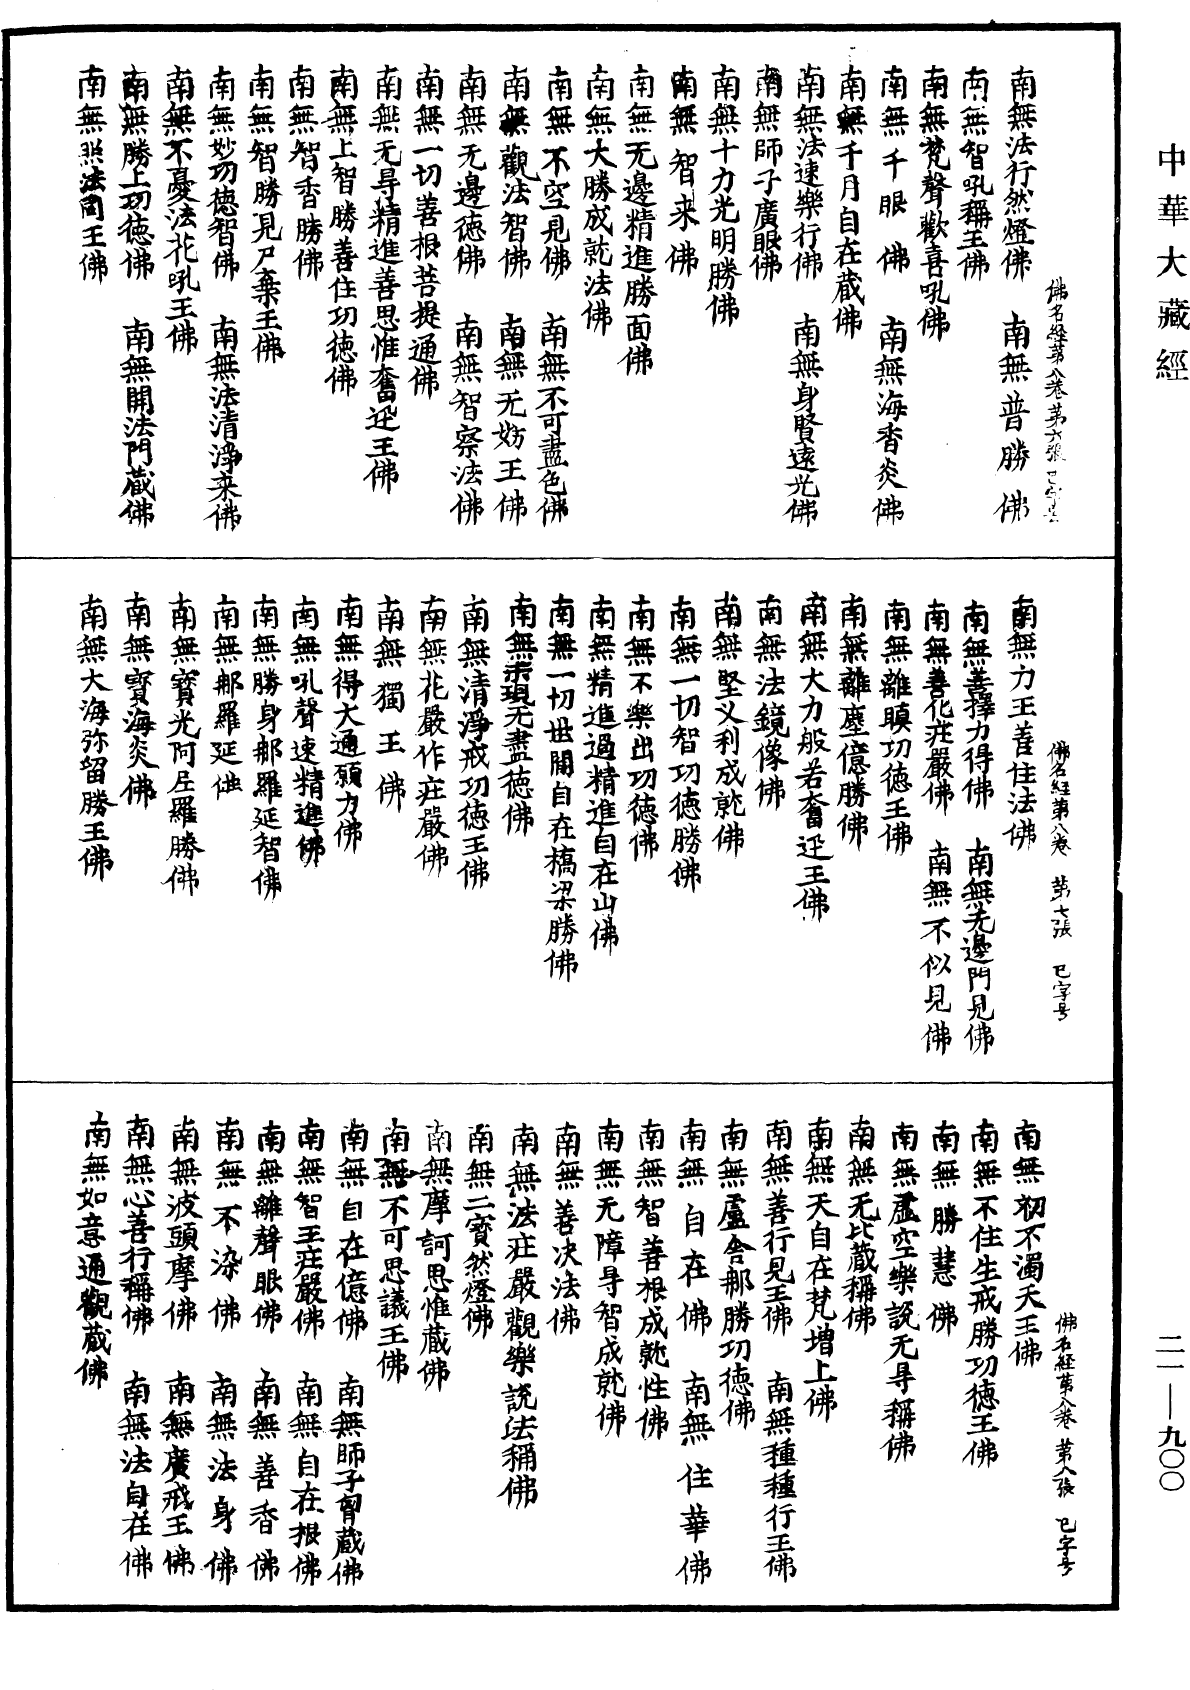 中華大藏經
佛名經第八卷 第六張 已字号
南無法行然燈佛 南無普勝佛
南無智吼稱王佛
南無梵聲歡喜吼佛
南無千眼佛 南無海香炎佛
南無千月自在蔵佛
南無法速樂行佛 南無身賢速光佛
南無師子廣眼佛
南無十力光明勝佛
南無智来佛
南無无邊精進勝面佛
南無大勝成就法佛
南無不空見佛 南無不可盡色佛
南無觀法智佛 南無无妨王佛
南無无邊徳佛 南無智察法佛
南無一切善根菩提通佛
南無无㝵精進善思惟奮迅王佛
南無上智勝善住功徳佛
南無智香勝佛
南無智勝見尸棄王佛
南無妙功徳智佛 南無法清淨来佛
南無不憂法花吼王佛
南無勝上功徳佛 南無開法門蔵佛
南無照法同王佛
佛名經第八卷 第七張 已字号
南無力王善住法佛
南無善擇力得佛 南無无邊門見佛
南無善花莊嚴佛 南無不似見佛
南無離瞋功徳王佛
南無離塵億勝佛
南無大力般若奮迅王佛
南無法鏡像佛
南無堅义利成就佛
南無一切智功徳勝佛
南無不樂出功徳佛
南無精進過精進自在山佛
南無一切世間自在橋梁勝佛
南無示現无盡徳佛
南無清淨戒功徳王佛
南無花嚴作莊嚴佛
南無獨王佛
南無得大通願力佛
南無吼聲速精進佛
南無勝身那羅延智佛
南無那羅延佛
南無寶光阿㞐羅勝佛
南無寳海炎佛
南無大海弥留勝王佛
佛名經第八卷 第八張 已字号
南無初不濁天王佛
南無不住生戒勝功徳王佛
南無勝慧佛
南無虛空樂説无㝵稱佛
南無无比蔵稱佛
南無天自在梵增上佛
南無善行見王佛 南無種種行王佛
南無盧舍那勝功徳佛
南無自在佛 南無住華佛
南無智善根成就性佛
南無无障㝵智成就佛
南無善决法佛
南無法莊嚴觀樂説法稱佛
南無二寳然燈佛
南無摩訶思惟蔵佛
南無不可思議王佛
南無自在億佛 南無師子胷蔵佛
南無智王莊嚴佛 南無自在根佛
南無離聲眼佛 南無善香佛
南無不染佛 南無法身佛
南無波頭摩佛 南無廣戒王佛
南無心善行稱佛 南無法自在佛
南無如意通觀蔵佛
二一—九〇〇